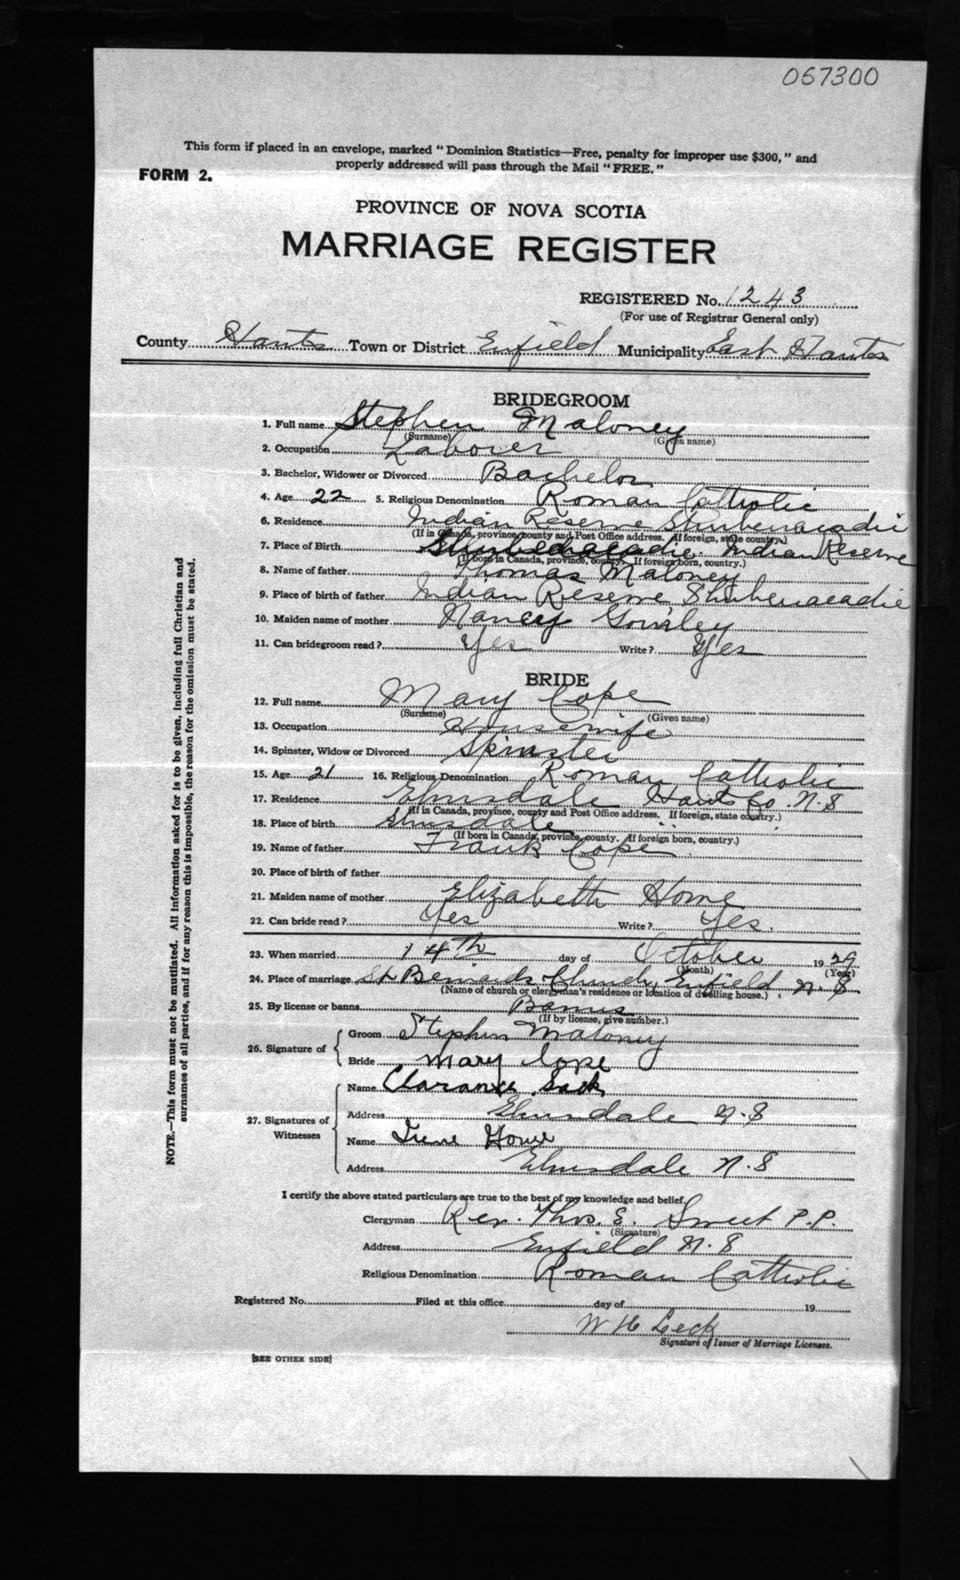 067300
This form if placed in an envelope, marked "Dominion Statistics—Free, penalty for improper use $300," and
properly addressed will pass through the Mail "FREE."
FORM 2.
PROVINCE OF NOVA SCOTIA
MARRIAGE REGISTER
REGISTERED No. 1243
(For use of Registrar General only)
County Hants Town or District Enfield Municipality East Hants
BRIDEGROOM
1. Full name Stephen Maloney
(Surname) (Given name)
2. Occupation Laborer
3. Bachelor, Widower or Divorced Bachelor
4. Age 22 5. Religious Denomination Roman Catholic
6. Residence Indian Reserve Shubenacadie
(If in Canada, province, county and Post Office address. If foreign, state country.)
7. Place of Birth Shubenacadie Indian Reserve
(If born in Canada, province, county. If foreign born, country.)
8. Name of father Thomas Maloney
9. Place of birth of father Indian Reserve Shubenacadie
10. Maiden name of mother Nancy
11. Can bridegroom read? Yes Write? Yes
BRIDE
12. Full name Mary Cope
(Surname) (Given name)
13. Occupation Housewife
14. Spinster, Widow or Divorced Spinster
15. Age 21 16. Religious Denomination Roman Catholic
17. Residence Elmsdale Hants Co. N.S
(If in Canada, province, county and Post Office address. If foreign, state country.)
18. Place of birth Elmsdale
(If born in Canada, province, county. If foreign born, country.)
19. Name of father Frank Cope
20. Place of birth of father
21. Maiden name of mother Elizabeth
22. Can bride read? Yes Write? Yes.
23. When married 14th day of October 1929
(Month) (Year)
24. Place of marriage St Bernards Church, Enfield N.S
(Name of church or clergyman's residence or location of dwelling house.)
25. By license or banns Banns
(If by license, give number.)
26. Signature of
Groom Stephen Maloney
Bride Mary Cope
27. Signatures of Witnesses
Name Clarance Sack
Address Elmsdale N.S
Name Irene
Address Elmsdale N.S
I certify the above stated particulars are true to the best of my knowledge and belief.
Clergyman Rev. Thos. E. Sweet P.P.
(Signature)
Address Enfield N.S
Religious Denomination Roman Catholic
Registered No. Filed at this office day of 19
W H Leck
Signature of Issuer of Marriage Licenses.
[SEE OTHER SIDE]
NOTE.—This form must not be mutilated. All information asked for is to be given, including full Christian and
surnames of all parties, and if for any reason this is impossible, the reason for the omission must be stated.